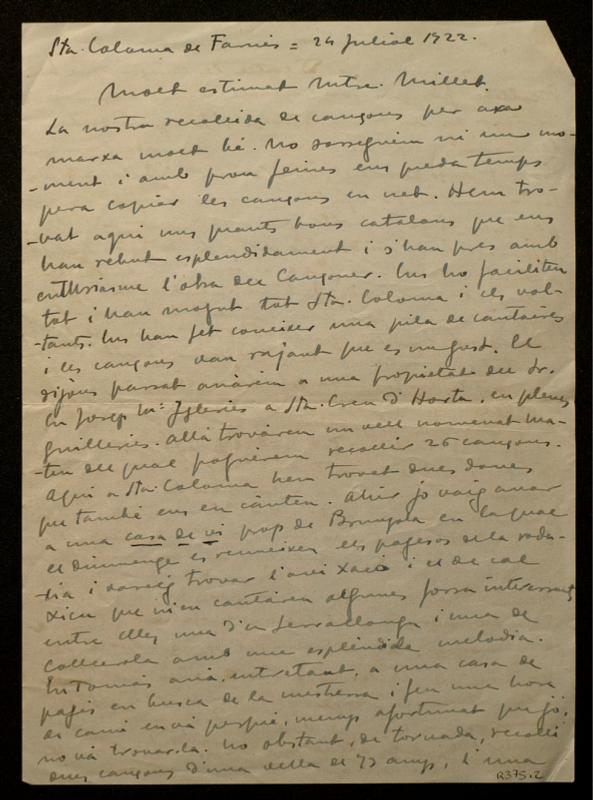 Sta. Coloma de Farnés = 24 Juliol 1922.
Molt estimat Mtre. Millet.
La nostra recollida de cançons per axa
marxa molt bé. No sosseguem ni un mo-
-ment i amb prou feines ens queda temps
pera copiar les cançons en net. Hem tro-
-vat aqui uns quants bons catalans que ens
han rebut esplendidament i s'han pres amb
enthusiasme l'obra del Cançoner. Ens ho faciliten
tot i han mogut tot Sta. Coloma i els vol-
-tants. Ens han fet coneixer una pila de cantaires
i les cançons van rajant que es un gust. El
dijous passat anàrem a una propietat del Sr.
En Josep Mª Iglesies a Sta. Creu d'Horta, en plenes
guilleries. Allà trovàrem un vell nomenat Ma-
-teu del qual poguerem recollir 26 cançons.
Aqui a Sta. Coloma hem trovat dues dones
que també ens en canten. Ahir jo vaig anar
a una casa de vi prop de Brunyola en la qual
el diumenge es reuneixen els pagesos de la roda-
-lia i vareig trovar l'avi Xacó i el de cal
Xicu que m'en cantàren algunes forsa interessants
entre elles una d'en Serrallonga i una de
Collcerola amb una esplèndida melodia.
En Tomás anà, entretant, a una casa de
pagés en busca de la mestressa i feu una hora
de camí en và perquè, menys afortunat que jo,
no và trovarla. No obstant, de tornada, recollí
dues cançons d'una vella de 73 anys, i una
R375.2